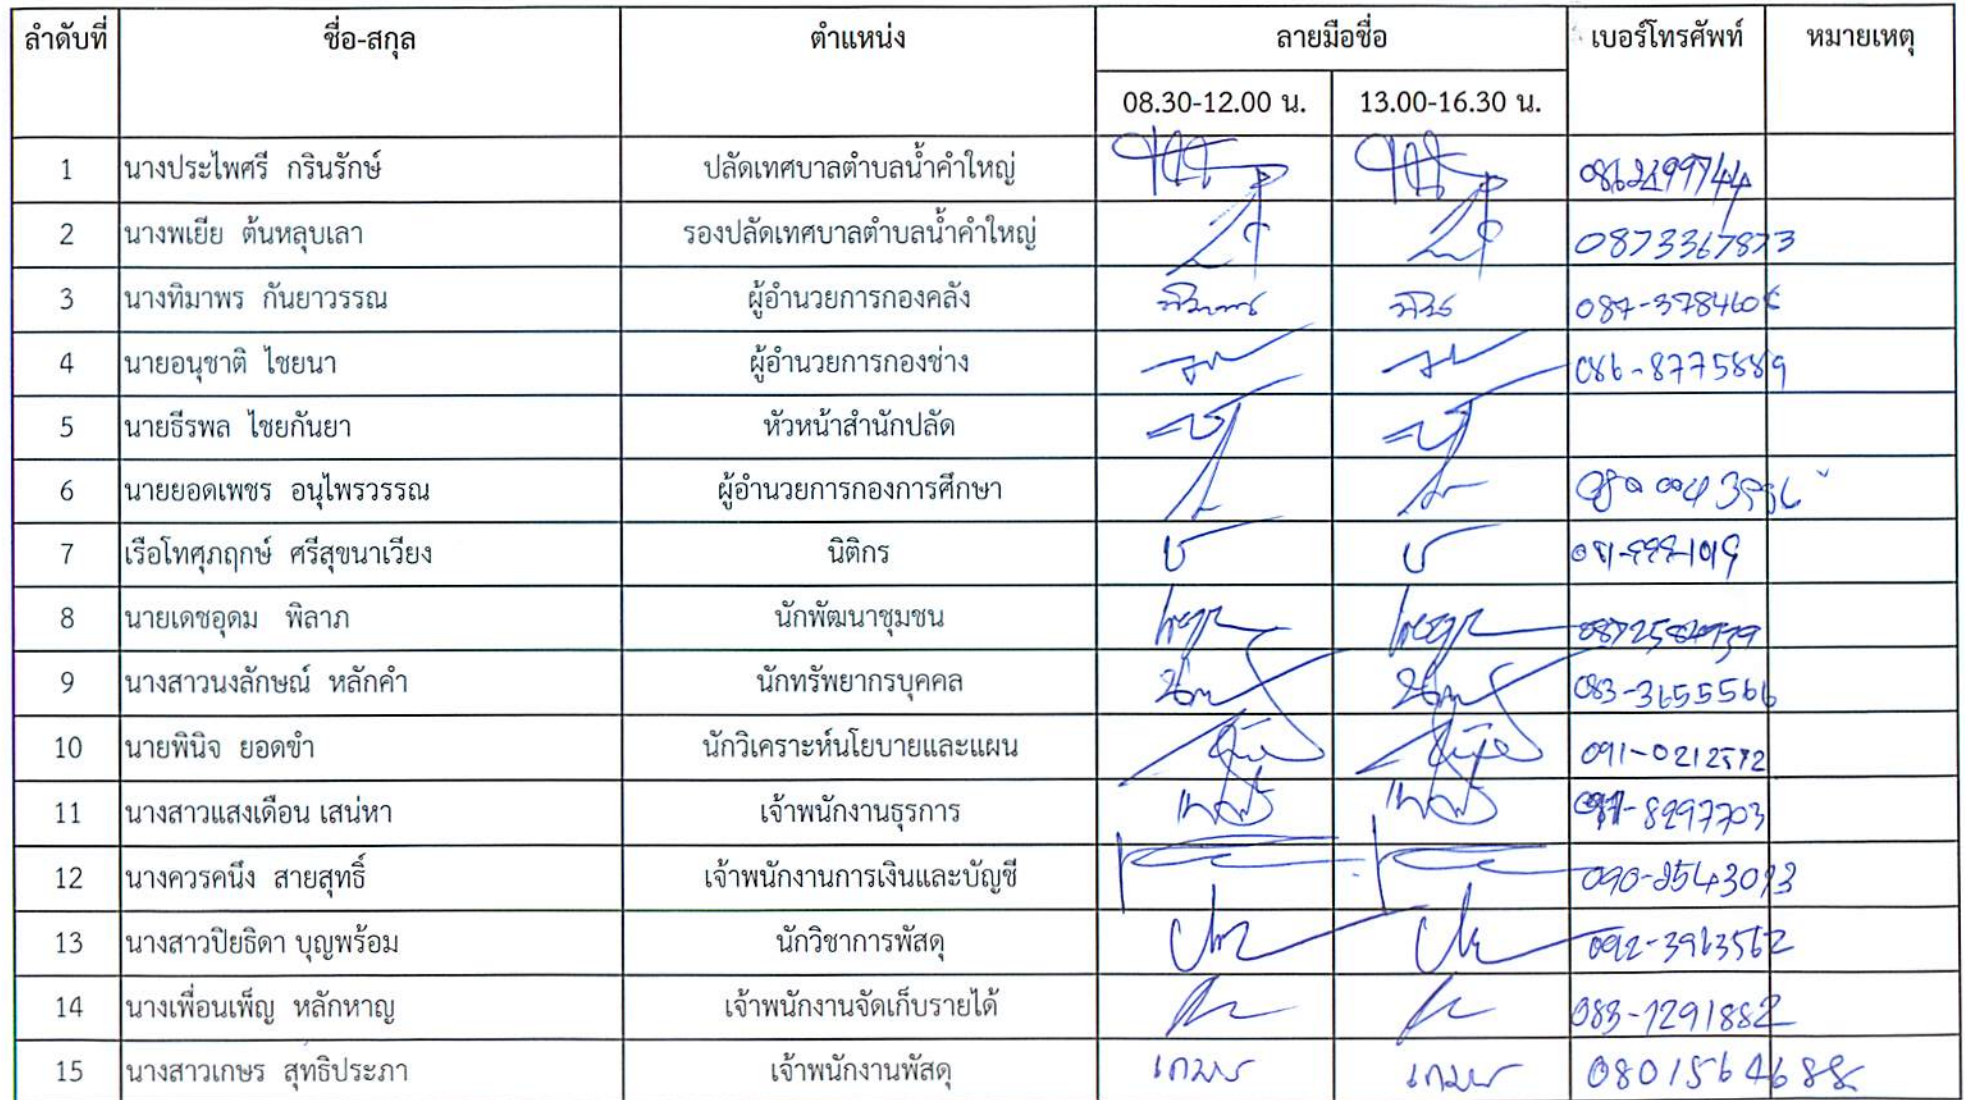 ลำดับที่ ชื่อ-สกุล ตำแหน่ง ลายมือชื่อ เบอร์โทรศัพท์ หมายเหตุ
08.30-12.00 น. 13.00-16.30 น.
1 นางประไพศรี กรินรักษ์ ปลัดเทศบาลตำบลน้ำคำใหญ่
2 นางพเยีย ต้นหลุบเลา รองปลัดเทศบาลตำบลน้ำคำใหญ่ 0873367873
3 นางทิมาพร กันยาวรรณ ผู้อำนวยการกองคลัง
4 นายอนุชาติ ไชยนา ผู้อำนวยการกองช่าง 086-8775889
5 นายธีรพล ไชยกันยา หัวหน้าสำนักปลัด
6 นายยอดเพชร อนุไพรวรรณ ผู้อำนวยการกองการศึกษา
7 เรือโทศุภฤกษ์ ศรีสุขนาเวียง นิติกร
8 นายเดชอุดม พิลาภ นักพัฒนาชุมชน
9 นางสาวนงลักษณ์ หลักคำ นักทรัพยากรบุคคล 083-3655566
10 นายพินิจ ยอดขำ นักวิเคราะห์นโยบายและแผน
11 นางสาวแสงเดือน เสน่หา เจ้าพนักงานธุรการ
12 นางควรคนึง สายสุทธิ์ เจ้าพนักงานการเงินและบัญชี
13 นางสาวปิยธิดา บุญพร้อม นักวิชาการพัสดุ 092-3963562
14 นางเพื่อนเพ็ญ หลักหาญ เจ้าพนักงานจัดเก็บรายได้ 083-1291882
15 นางสาวเกษร สุทธิประภา เจ้าพนักงานพัสดุ เกษร เกษร